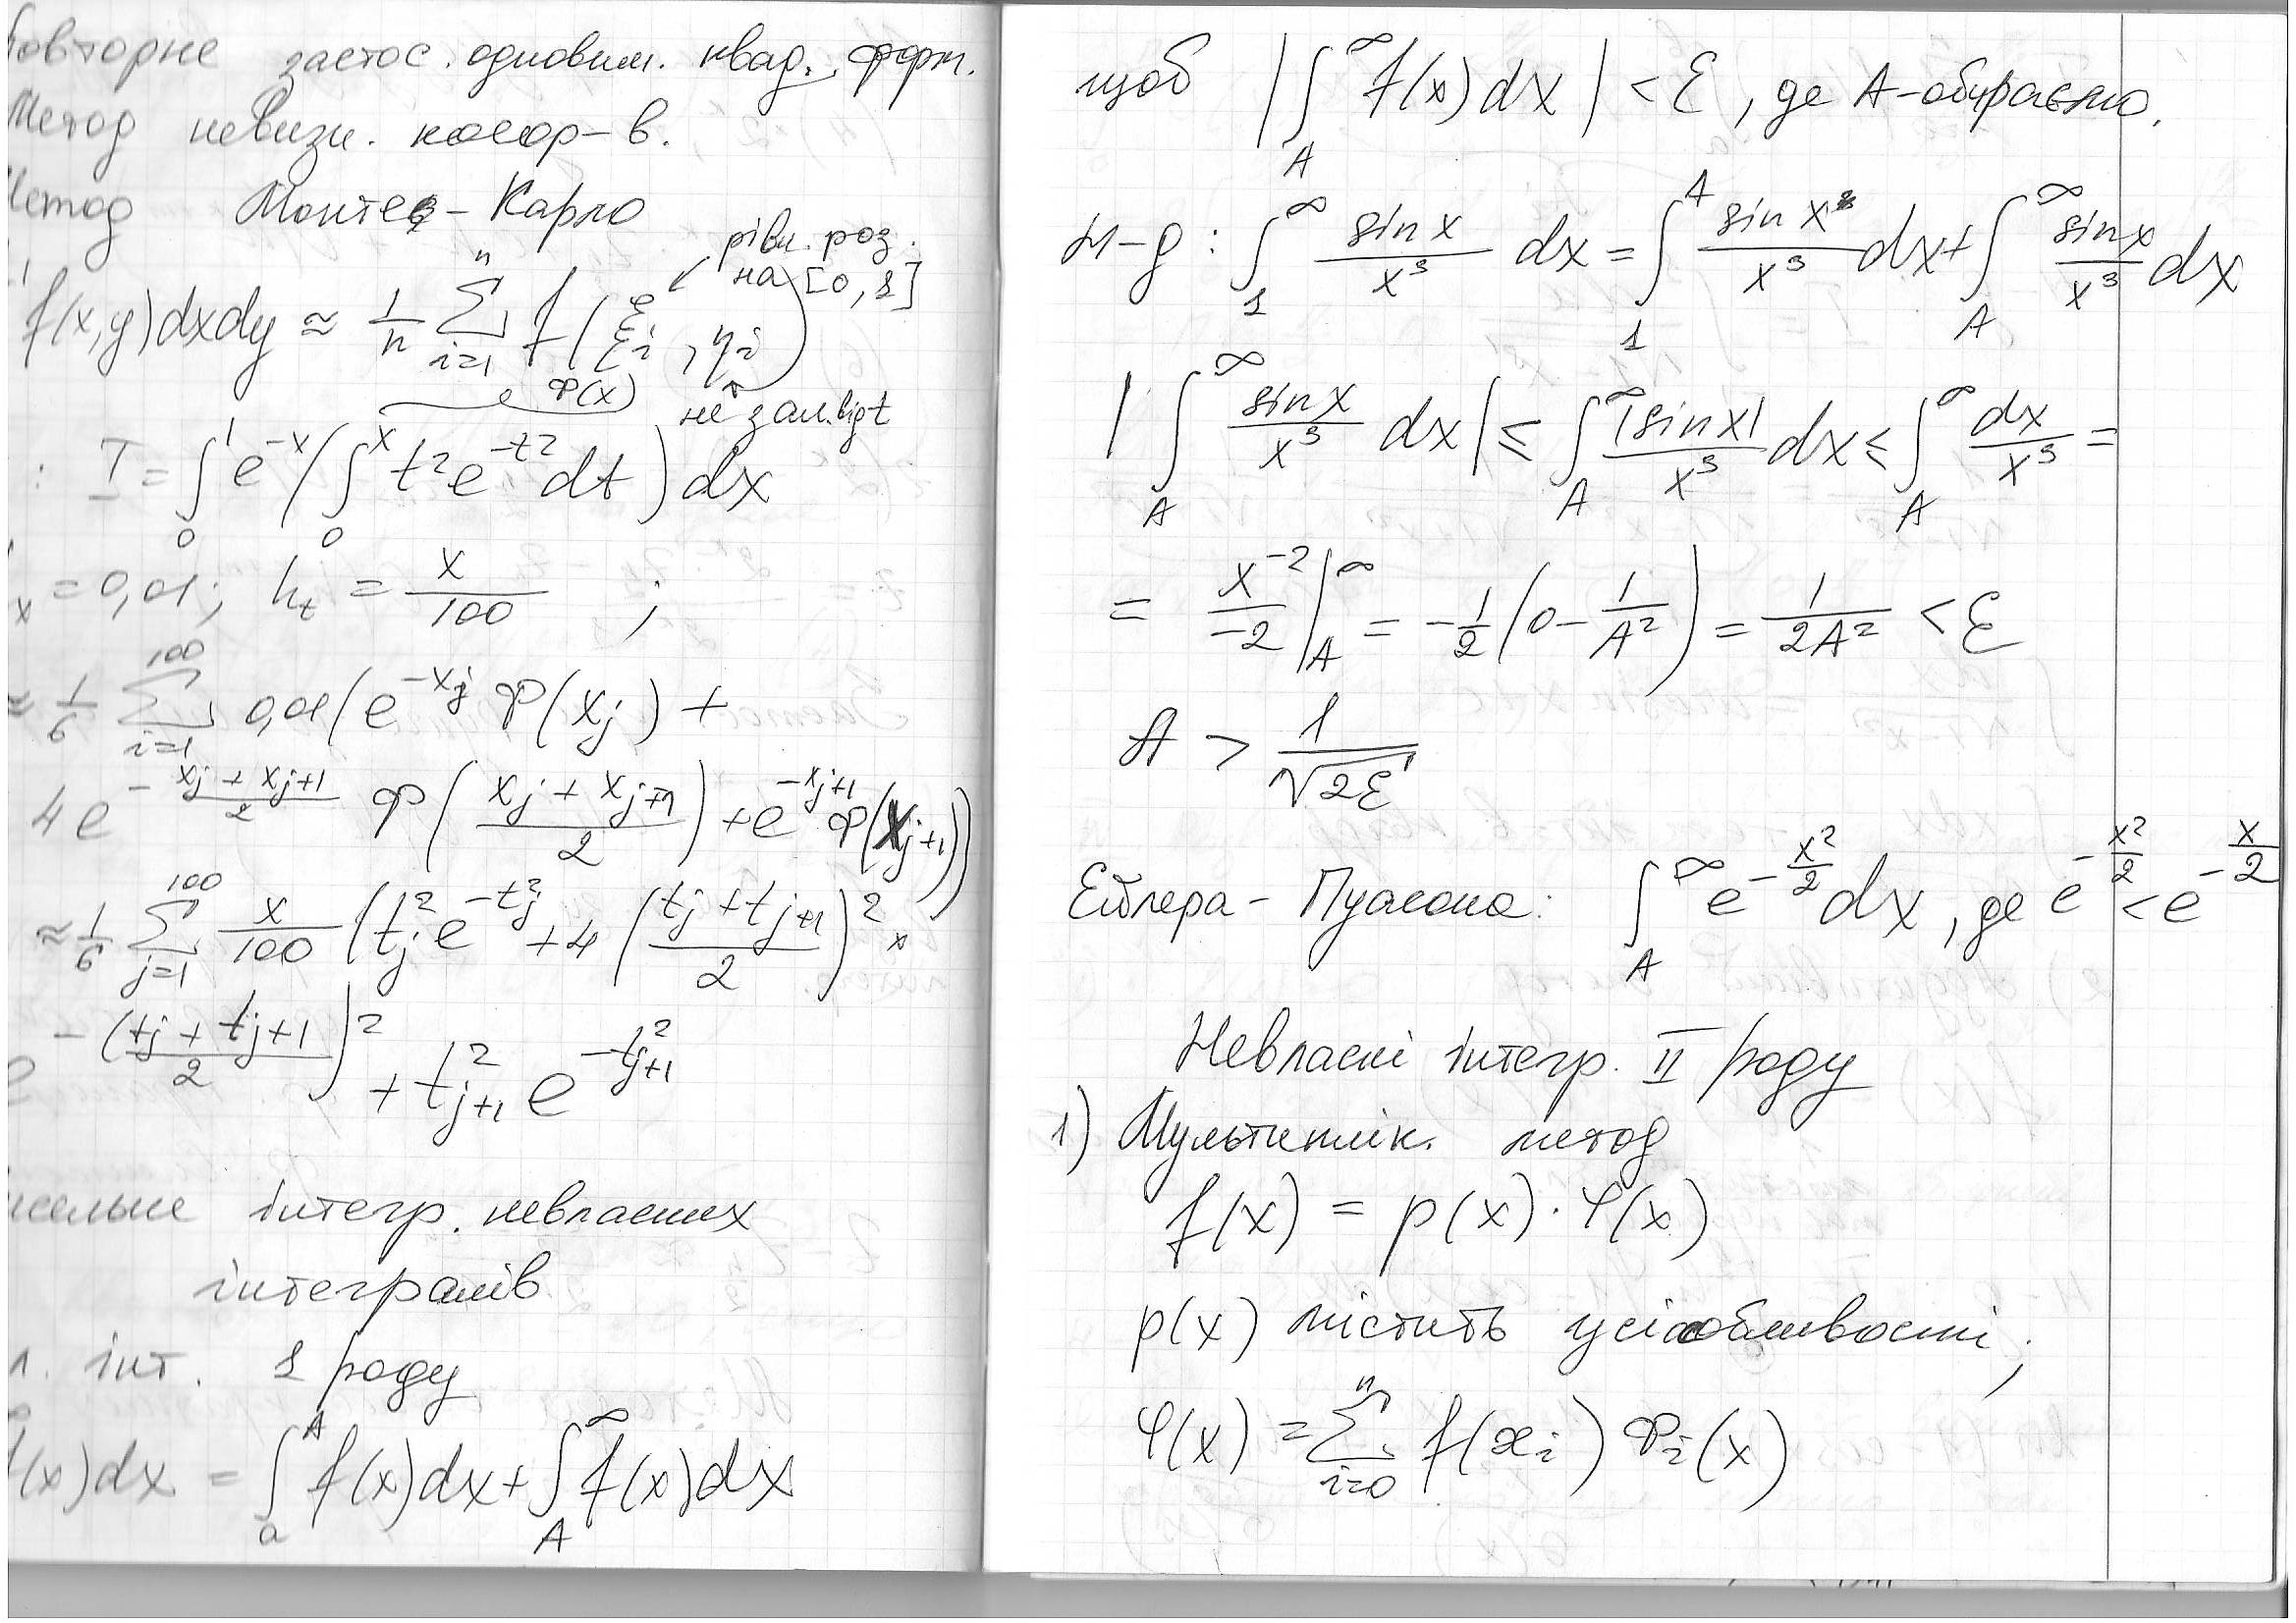 Повторне застос. одновим. квад. форм.
Метод невизн. коеф-в.
Метод Монте-Карло
рівн. роз.
на [0, 1]
f(x,y)dxdy ≈ 1/n ∑_{i=1}^{n} f(ξ_i, η_i)
Φ(x)
не зал. від t
: I = ∫_0^1 e^{-x} (∫_0^x t² e^{-t²} dt) dx
x = 0,01; h_t = x/100 ;
≈ 1/6 ∑_{i=1}^{100} 0,01(e^{-x_j} Φ(x_j) +
4e^{-(x_j + x_{j+1})/2} Φ((x_j + x_{j+1})/2) + e^{-x_{j+1}} Φ(x_{j+1}))
≈ 1/6 ∑_{j=1}^{100} x/100 (t_j² e^{-t_j²} + 4 ((t_j + t_{j+1})/2)² ×
e^{-((t_j + t_{j+1})/2)²} + t_{j+1}² e^{-t_{j+1}²}
інтегр. невласних
інтегралів
інт. 1 роду
f(x)dx = ∫_a^A f(x)dx + ∫_A^∞ f(x)dx
щоб |∫_A^∞ f(x)dx| < ε, де A-обираємо.
н-д: ∫_1^∞ sin x/x³ dx = ∫_1^A sin x/x³ dx + ∫_A^∞ sin x/x³ dx
|∫_A^∞ sin x/x³ dx| ≤ ∫_A^∞ |sin x|/x³ dx ≤ ∫_A^∞ dx/x³ =
= x^{-2}/-2 |_A^∞ = -1/2 (0 - 1/A²) = 1/2A² < ε
A > 1/√2ε
Ейлера-Пуасона: ∫_A^∞ e^{-x²/2} dx, де e^{-x²/2} < e^{-x/2}
Невласні інтегр. II роду
1) Мультиплік. метод
f(x) = p(x)·φ(x)
p(x) містить усі особливості;
φ(x) = ∑_{i=0}^{n} f(x_i) Φ_i(x)